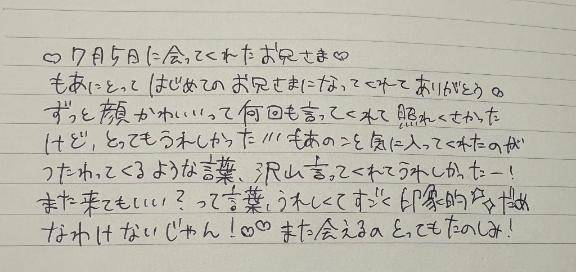 ♡7月5日に会ってくれたお兄さま♡
もあにとって はじめての お兄さまになってくれて ありがとう♡
ずっと顔かわいいって何回も言ってくれて 照れくさかった
けど、とってもうれしかった!!! もあのこと気に入ってくれたのが
つたわってくるような言葉、沢山言ってくれてうれしかったー!
また来てもいい?って言葉、うれしくてすごく印象的☆☆だめ
なわけないじゃん!♡♡ また会えるの とってもたのしみ!